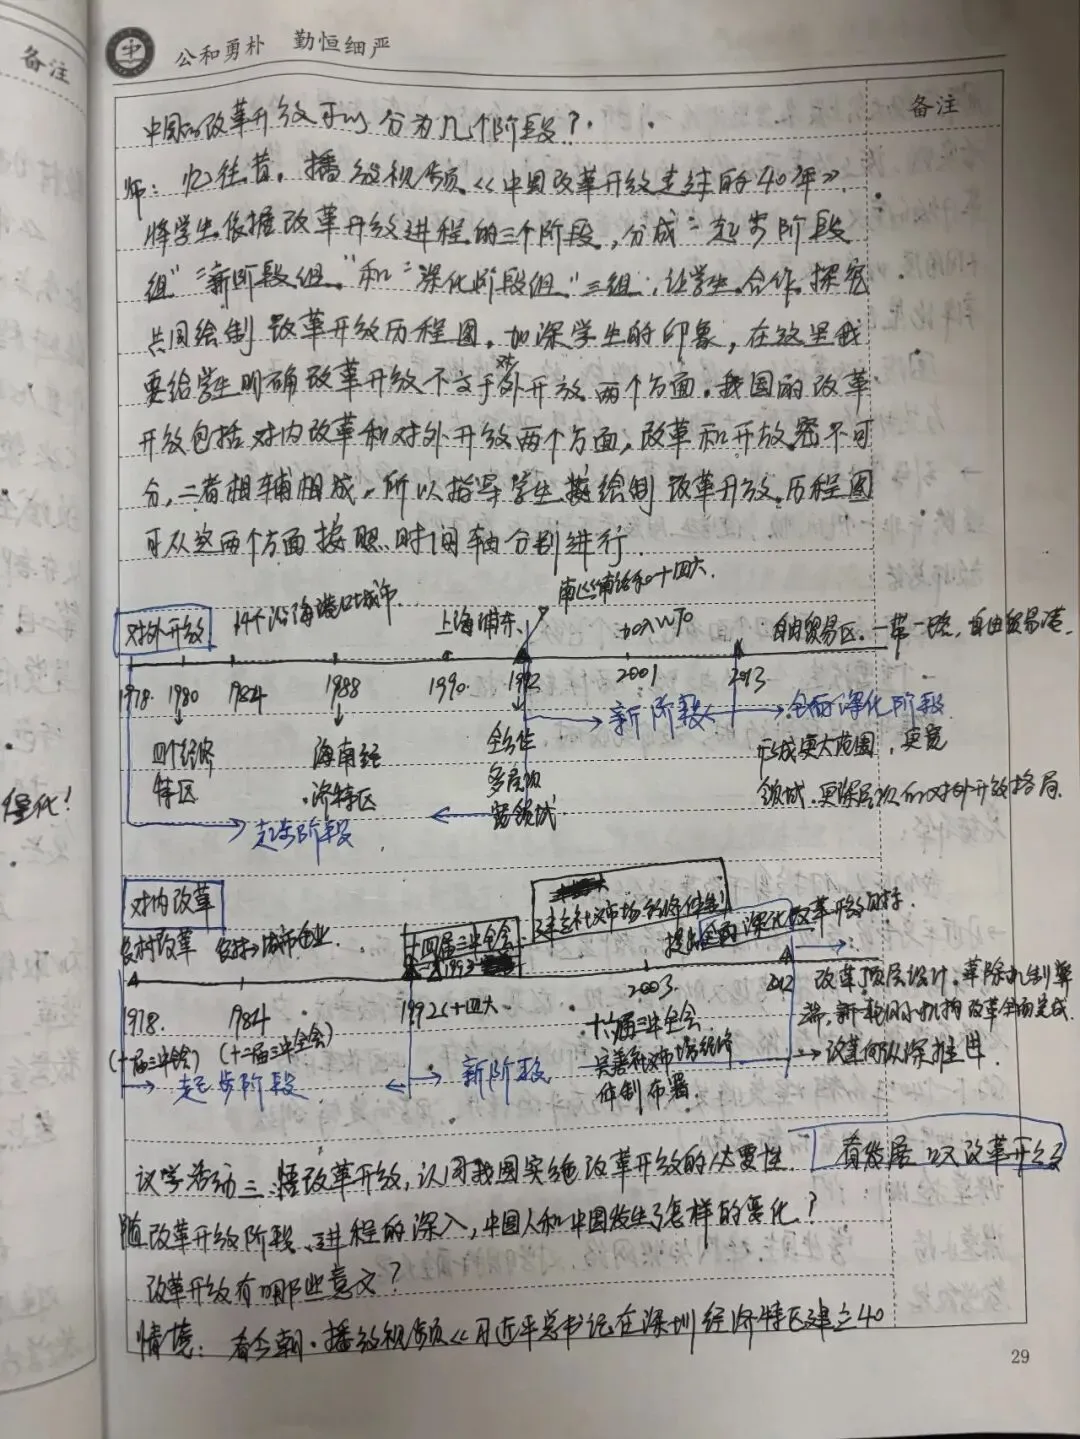 备注
公和勇朴 勤恒细严
备注
中国的改革开放可以分为几个阶段?
师：忆往昔。播放视频《中国改革开放走过的40年》.
将学生依据改革开放进程的三个阶段，分成"起步阶段
组""新阶段组"和"深化阶段组"三组；让学生合作探究
共同绘制改革开放历程图。加深学生的印象，在这里我
要给学生明确改革开放不文于对外开放两个方面。我国的改革
开放包括对内改革和对外开放两个方面，改革和开放密不可
分，二者相辅相成，所以指导学生绘制改革开放历程图
可从这两个方面按照时间轴分别进行.
南巡讲话和十四大.
对外开放 14个沿海港口城市. 上海浦东. 加入WTO 自由贸易区.一带一路，自由贸易港.
1978 1980 1984 1988 1990 1992 2001 2013
新阶段 全面深化阶段
四个经济特区
海南经济特区
全方位多层次宽领域
形成更大范围，更宽
领域.更深层次的对外开放格局.
僵化!
起步阶段
对内改革
建立社会主义市场经济体制
农村改革 农村→城市企业. 十四届三中全会 1993 提出全面深化改革开放目标.
1978 1984 1992(十四大 2003. 2012
(十一届三中全会) (十二届三中全会)
十六届三中全会
完善社会市场经济
体制布署
改革顶层设计.革除机制弊
端.新一轮的机构改革全面完成.
→改革向纵深推进
起步阶段 新阶段
议学活动三:悟改革开放，认同我国实施改革开放的必要性. 看发展 改革开放
随改革开放阶段、进程的深入，中国人和中国发生了怎样的变化?
改革开放有哪些意义?
情境：看今朝.播放视频《习近平总书记在深圳经济特区建立40
29